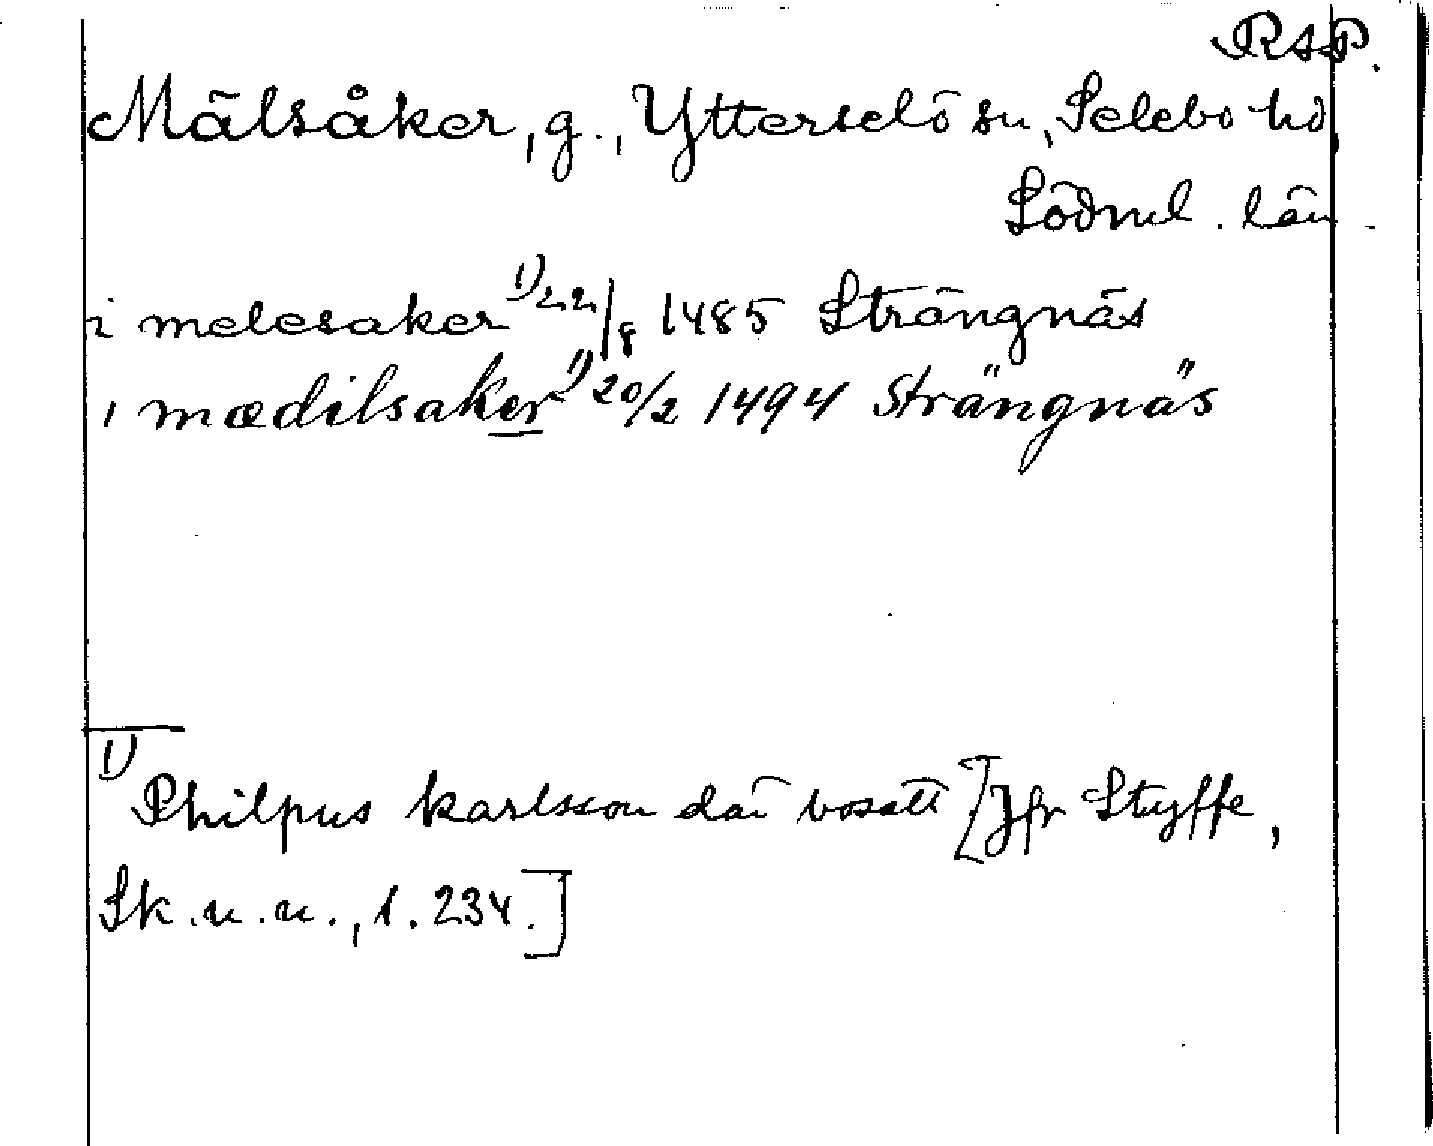 RAP.
Mälsåker, g., Ytterselö sn, Selebo hd
Södml. län.
i melesaker 1) 22/8 1485 Strängnäs
i mædilsaker 1) 20/2 1494 Strängnäs
1) Philpus karlsson där bosatt [Jfr Styffe,
Sk.u.u., 1.234.]